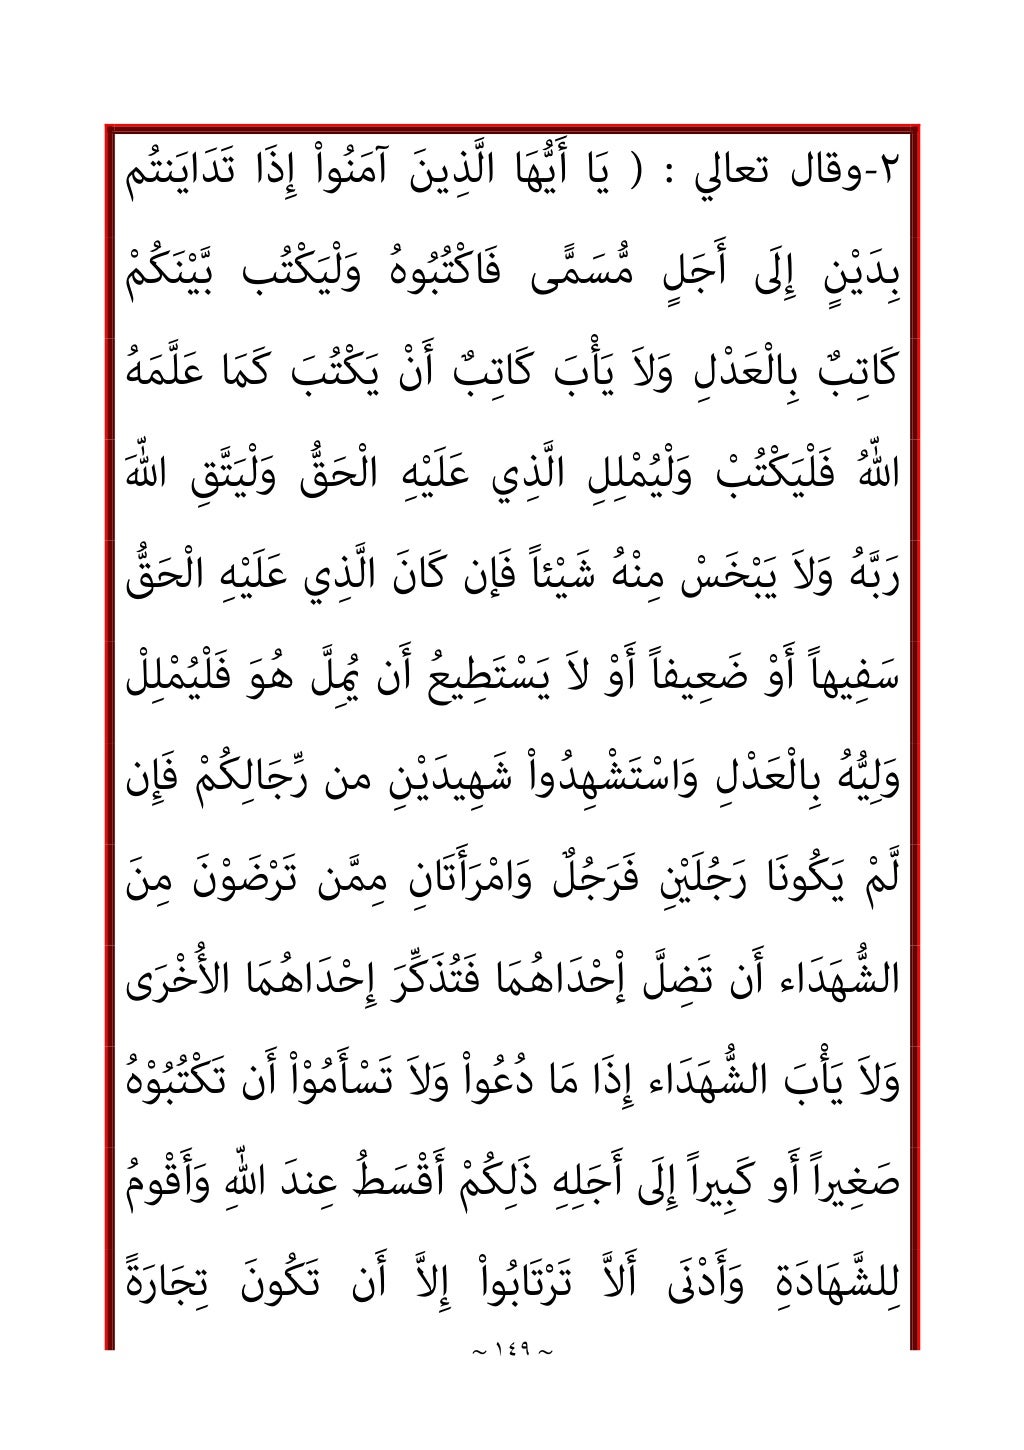 ٢-وقال تعالي : ( يَا أَيُّهَا الَّذِينَ آمَنُواْ إِذَا تَدَايَنتُم
بِدَيْنٍ إِلَى أَجَلٍ مُّسَمًّى فَاكْتُبُوهُ وَلْيَكْتُب بَّيْنَكُمْ
كَاتِبٌ بِالْعَدْلِ وَلاَ يَأْبَ كَاتِبٌ أَنْ يَكْتُبَ كَمَا عَلَّمَهُ
اللّهُ فَلْيَكْتُبْ وَلْيُمْلِلِ الَّذِي عَلَيْهِ الْحَقُّ وَلْيَتَّقِ اللّهَ
رَبَّهُ وَلاَ يَبْخَسْ مِنْهُ شَيْئاً فَإن كَانَ الَّذِي عَلَيْهِ الْحَقُّ
سَفِيهاً أَوْ ضَعِيفاً أَوْ لاَ يَسْتَطِيعُ أَن يُمِلَّ هُوَ فَلْيُمْلِلْ
وَلِيُّهُ بِالْعَدْلِ وَاسْتَشْهِدُواْ شَهِيدَيْنِ من رِّجَالِكُمْ فَإِن
لَّمْ يَكُونَا رَجُلَيْنِ فَرَجُلٌ وَامْرَأَتَانِ مِمَّن تَرْضَوْنَ مِنَ
الشُّهَدَاء أَن تَضِلَّ إْحْدَاهُمَا فَتُذَكِّرَ إِحْدَاهُمَا الأُخْرَى
وَلاَ يَأْبَ الشُّهَدَاء إِذَا مَا دُعُواْ وَلاَ تَسْأَمُوْاْ أَن تَكْتُبُوْهُ
صَغِيراً أَو كَبِيراً إِلَى أَجَلِهِ ذَلِكُمْ أَقْسَطُ عِندَ اللّهِ وَأَقْومُ
لِلشَّهَادَةِ وَأَدْنَى أَلاَّ تَرْتَابُواْ إِلاَّ أَن تَكُونَ تِجَارَةً
~ ١٤٩ ~